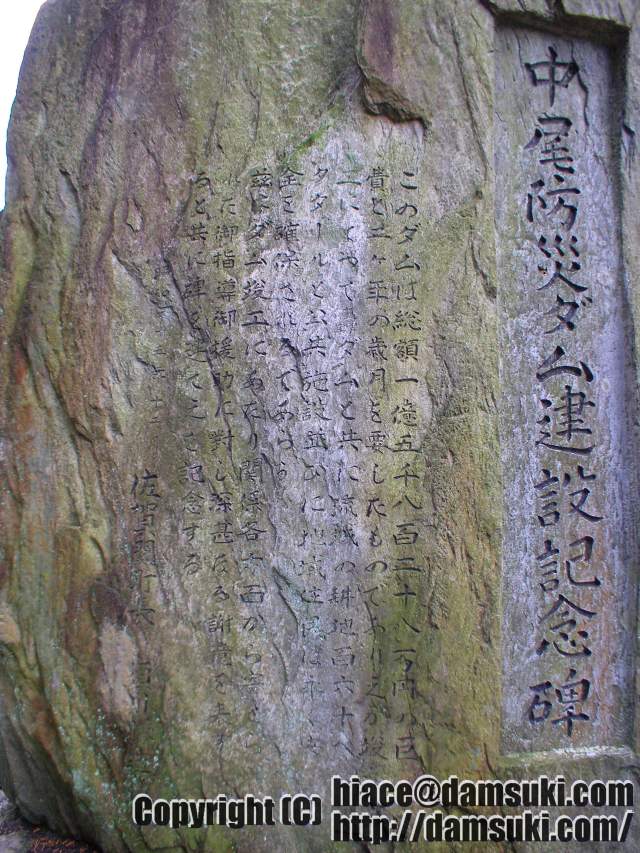 中尾防災ダム建設記念碑
このダムは総額一億五千八百三十八万円の巨
費と二ヶ年の歳月を要したものであり之が竣
工によってダムと共に流域の耕地百六十ヘ
クタールと公共施設並びに地域住民は永く安
全を確保されるであろう
茲にダム竣工にあたり関係各方面から
た御指導御援助に對し深甚なる謝意を表す
ると共に碑を建て之を記念する
佐賀
Copyright (C) hiace@damsuki.com
http://damsuki.com/